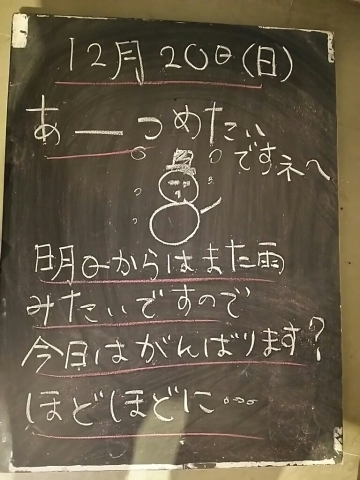 12月20日(日)
あーつめたい
ですネへ
明日からはまた雨
みたいですので
今日はがんばります?
ほどほどに…